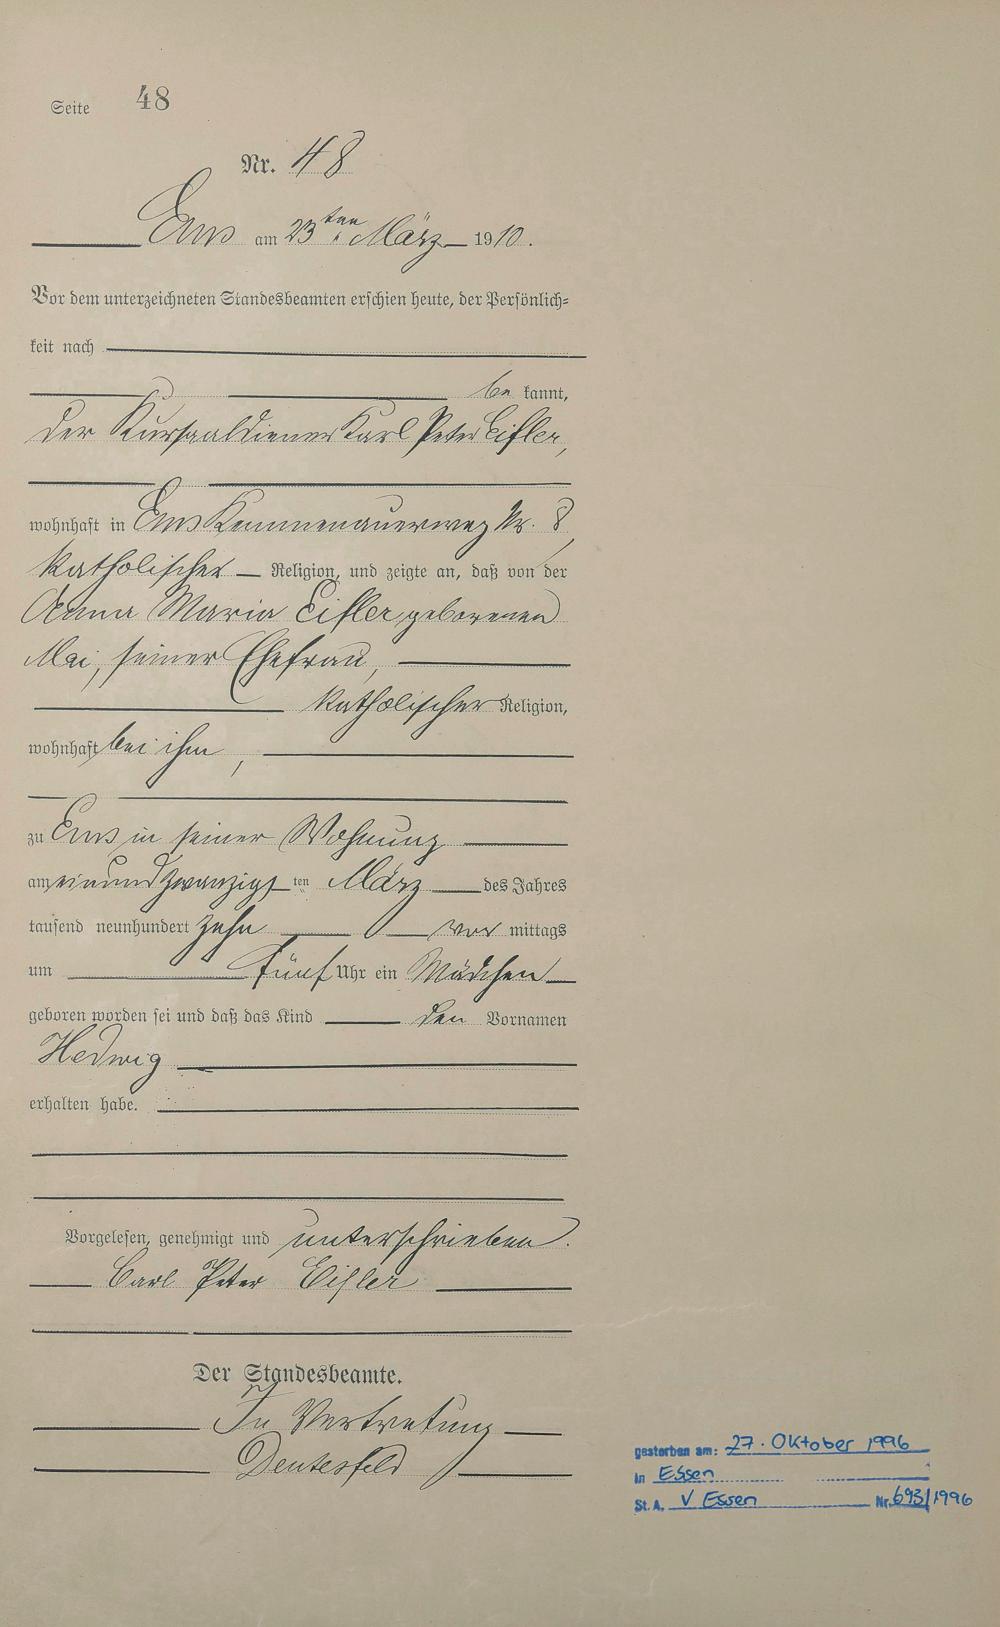 Seite 48
Nr. 48
Ems am 23ten März 1910.
Vor dem unterzeichneten Standesbeamten erschien heute, der Persönlich-
keit nach
be kannt,
der Kursaaldiener Karl Peter Eifler,
wohnhaft in Ems Kemmenauerweg Nr. 8,
katholischer Religion, und zeigte an, daß von der
Anna Maria Eifler geborenen
Mai, seiner Ehefrau,
katholischer Religion,
wohnhaft bei ihm,
zu Ems in seiner Wohnung
am einundzwanzigsten März des Jahres
tausend neunhundert zehn vor mittags
um fünf Uhr ein Mädchen
geboren worden sei und daß das Kind den Vornamen
Hedwig
erhalten habe.
Vorgelesen, genehmigt und unterschrieben.
Carl Peter Eifler
Der Standesbeamte.
In Vertretung
gestorben am: 27. Oktober 1996
in Essen
St. A. V Essen Nr. 693/1996